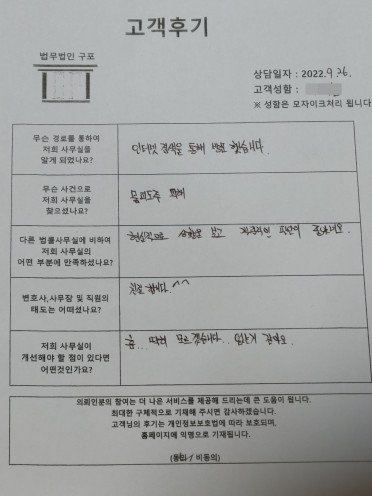 고객후기
법무법인 구포
상담일자 : 2022. 9. 26.
고객성함 :
※ 성함은 모자이크처리 됩니다
무슨 경로를 통하여
저희 사무실을
알게 되었나요?
인터넷 검색을 통해 방문 했습니다.
무슨 사건으로
저희 사무실을
찾으셨나요?
물피도주 피해
다른 법률사무실에 비하여
저희 사무실의
어떤 부분에 만족하셨나요?
현실적으로 상황을 보고 객관적인 판단이 좋네요.
변호사,사무장 및 직원의
태도는 어떠셨나요?
친절 합니다. ^^
저희 사무실이
개선해야 할 점이 있다면
어떤것인가요?
흠.. 딱히 모르겠습니다.. 없는거 같아요.
의뢰인분의 참여는 더 나은 서비스를 제공해 드리는데 큰 도움이 됩니다.
최대한 구체적으로 기재해 주시면 감사하겠습니다.
고객님의 후기는 개인정보보호법에 따라 보호되며,
홈페이지에 익명으로 기재됩니다.
(동의 / 비동의)